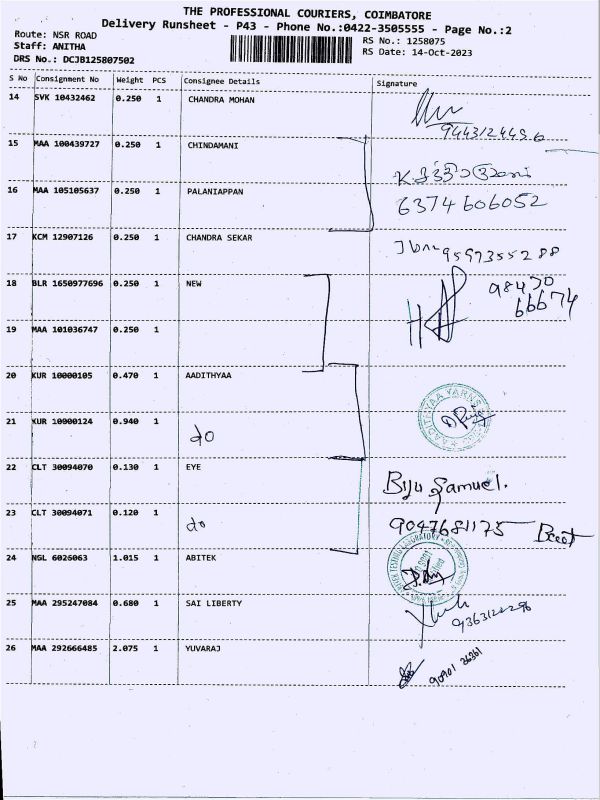 THE PROFESSIONAL COURIERS, COIMBATORE
Delivery Runsheet - P43 - Phone No.:0422-3505555 - Page No.:2
Route: NSR ROAD
Staff: ANITHA
DRS No.: DCJB125807502
RS No.: 1258075
RS Date: 14-Oct-2023
S No Consignment No Weight PCS Consignee Details Signature
14 SVK 10432462 0.250 1 CHANDRA MOHAN
15 MAA 100439727 0.250 1 CHINDAMANI
16 MAA 105105637 0.250 1 PALANIAPPAN 6374606052
17 KCM 12907126 0.250 1 CHANDRA SEKAR 9597355288
18 BLR 1650977696 0.250 1 NEW 98430
66674
19 MAA 101036747 0.250 1
20 KUR 10000105 0.470 1 AADITHYAA
AADITHYAA YARNS
21 KUR 10000124 0.940 1 do
22 CLT 30094070 0.130 1 EYE Biju Samuel.
23 CLT 30094071 0.120 1 do 9047681175
24 NGL 6026063 1.015 1 ABITEK
TESTING LABORATORY
25 MAA 295247084 0.680 1 SAI LIBERTY
26 MAA 292666485 2.075 1 YUVARAJ 90901 36361